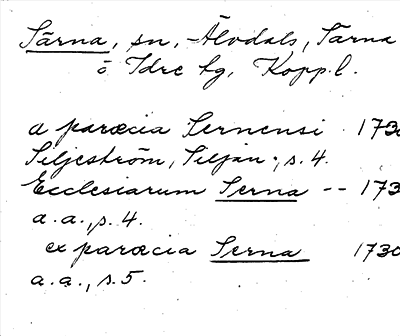 Särna, sn, Älvdals, Särna
o Idre tg, Kopp.l.
a parœcia Sernensi 1730
Siljeström, Siljan., s. 4.
Ecclesiarum Serna -- 173
a.a., s. 4.
ex parœcia Serna 1730
a.a., s. 5.